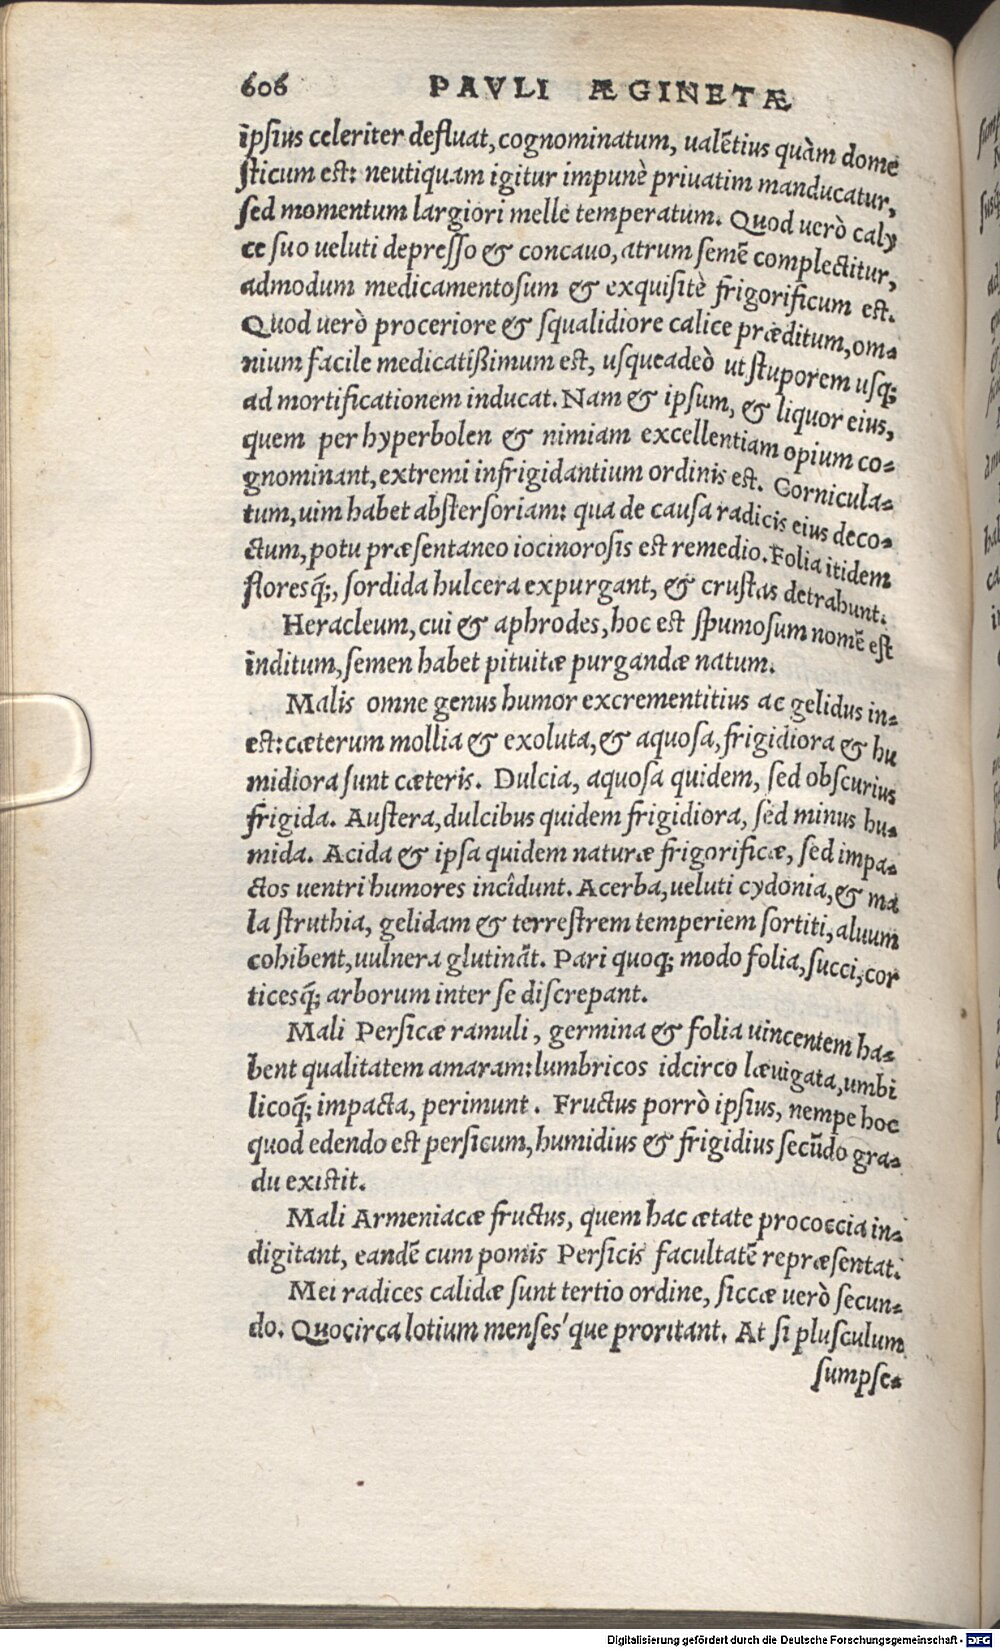 606 PAVLI ÆGINETÆ
ipsius celeriter defluat, cognominatum, ualẽtius quàm dome
sticum est: neutiquam igitur impunè priuatim manducatur,
sed momentum largiori melle temperatum. Quod uerò caly
ce suo ueluti depresso & concauo, atrum semẽ complectitur,
admodum medicamentosum & exquisitè frigorificum est.
Quod uerò proceriore & squalidiore calice præditum, om-
nium facile medicatißimum est, usqueadeò ut stuporem usq;
ad mortificationem inducat. Nam & ipsum, & liquor eius,
quem per hyperbolen & nimiam excellentiam opium co-
gnominant, extremi infrigidantium ordinis est. Cornicula-
tum, uim habet abstersoriam: qua de causa radicis eius deco-
ctum, potu præsentaneo iocinorosis est remedio. Folia itidem
floresq̃;, sordida hulcera expurgant, & crustas detrahunt.
Heracleum, cui & aphrodes, hoc est spumosum nomẽ est
inditum, semen habet pituitæ purgandæ natum.
Malis omne genus humor excrementitius ac gelidus in-
est: cæterum mollia & exoluta, & aquosa, frigidiora & hu
midiora sunt cæteris. Dulcia, aquosa quidem, sed obscurius
frigida. Austera, dulcibus quidem frigidiora, sed minus hu-
mida. Acida & ipsa quidem naturæ frigorificæ, sed impa-
ctos uentri humores incîdunt. Acerba, ueluti cydonia, & ma
la struthia, gelidam & terrestrem temperiem sortiti, aluum
cohibent, uulnera glutinãt. Pari quoq; modo folia, succi, cor
ticesq̃; arborum inter se discrepant.
Mali Persicæ ramuli, germina & folia uincentem ha-
bent qualitatem amaram: lumbricos idcirco læuigata, umbi
licoq̃; impacta, perimunt. Fructus porrò ipsius, nempe hoc
quod edendo est persicum, humidius & frigidius secũdo gra-
du existit.
Mali Armeniacæ fructus, quem hac ætate prococcia in-
digitant, eandẽ cum pomis Persicis facultatẽ repræsentat.
Mei radices calidæ sunt tertio ordine, siccæ uerò secun-
do. Quocirca lotium menses'que proritant. At si plusculum
sumpse-
Digitalisierung gefördert durch die Deutsche Forschungsgemeinschaft - DFG